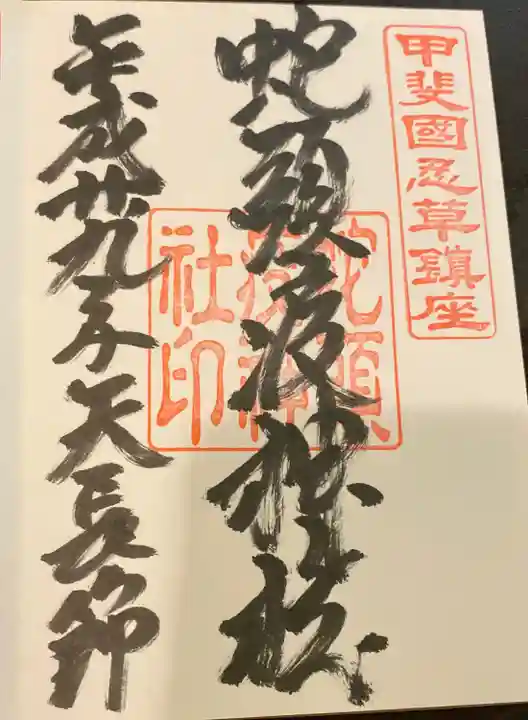 甲斐國忍草鎮座
蛇頭疫神社
蛇頭
疫神
社印
平成廿九年天長節